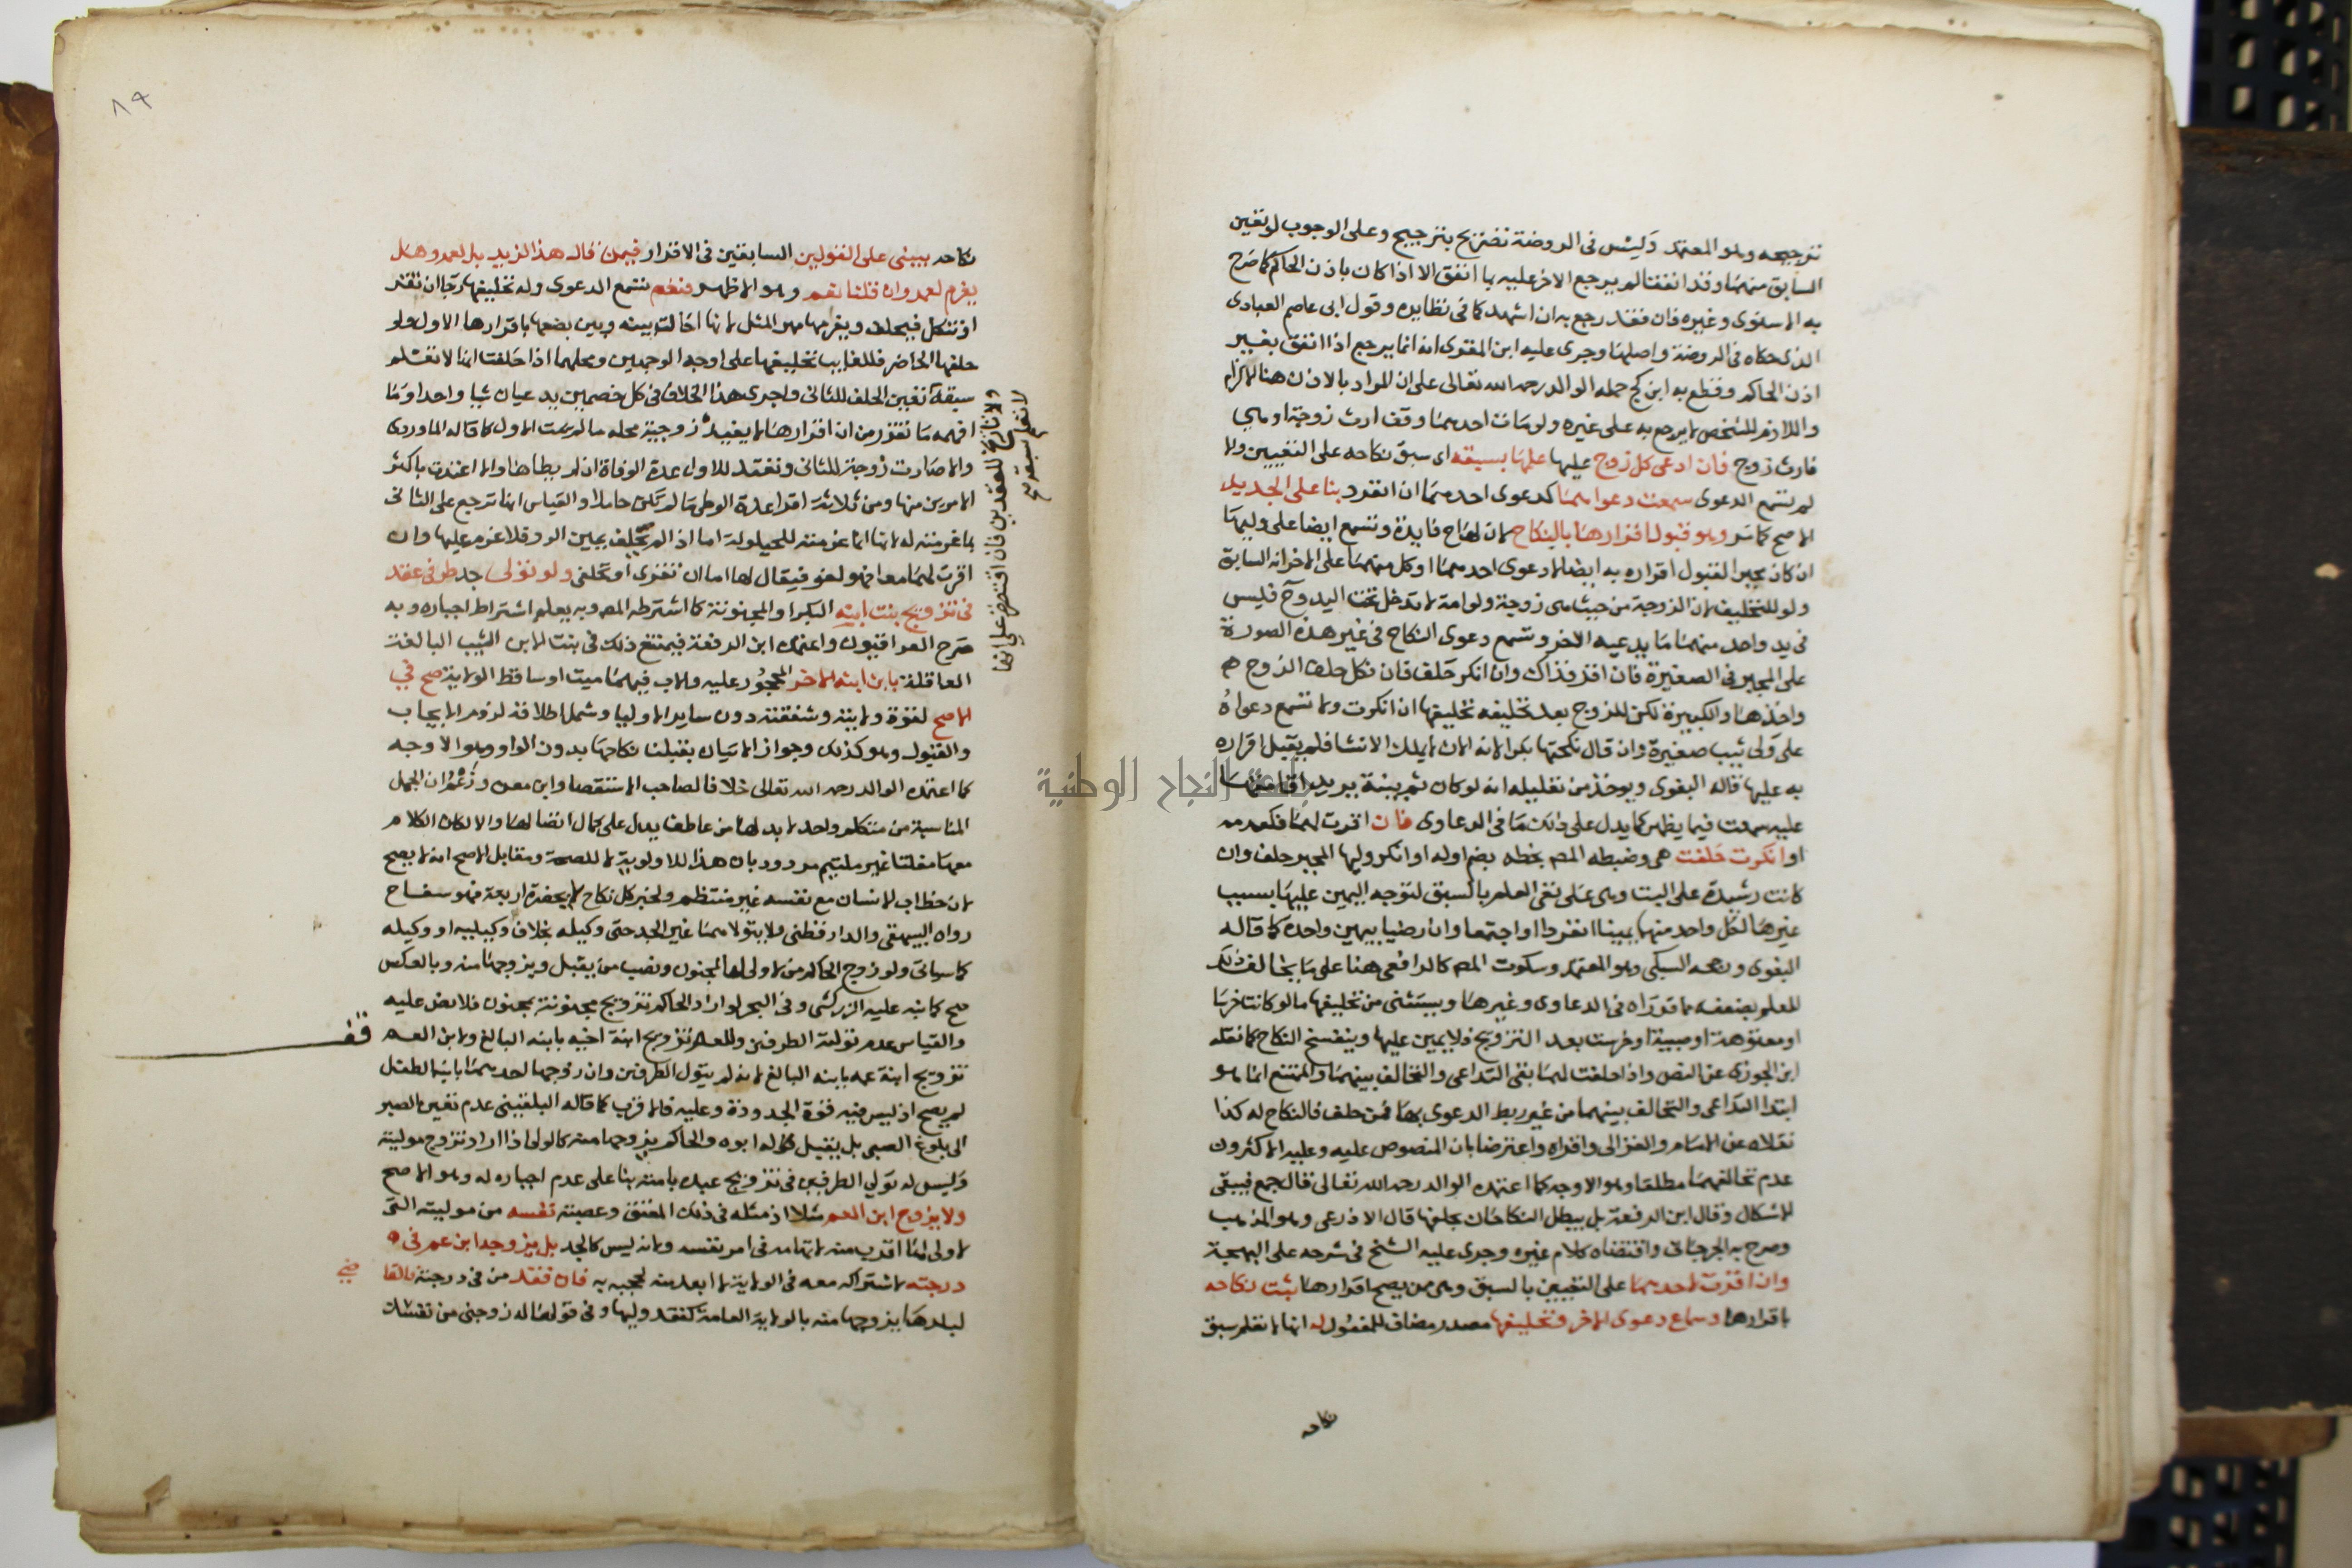 ترجيحه وهو المعتمد وليس فى الروضة تصريح بترجيح وعلى الوجوب لو تعين
السابق منهما وقد انفقتا لم يرجع الاخر عليه بما انفق الا اذا كان باذن الحاكم كما صرح
به الاسنوى وغيره فان فقد رجع به ان اشهد كما فى نظايره وقول ابى عاصم العبادى
الذى حكاه فى الروضة واصلها وجرى عليه ابن المقرى انه انما يرجع اذا انفق بغير
اذن الحاكم وقطع به ابن كج حمله الوالد رحمه الله تعالى على ان المراد بالاذن هنا الالزام
واللازم للشخص لا يرجع به على غيره ولو مات احدهما وقف ارث زوجة او هى
فارث زوج فان ادعى كل زوج عليها علمها بسبقه اى سبق نكاحه على التعيين والا
لم تسمع الدعوى سمعت دعواهما كدعوى احدهما ان انفرد بنا على الجديد
الاصح كما مر وهو قبول اقرارها بالنكاح لان لها ح فايدة وتسمع ايضا على وليها
ان كان مجبرا لقبول اقراره به ايضا لا دعوى احدهما او كل منهما على الاخر انه السابق
ولو للتحليف لان الزوجة من حيث هى زوجة ولو امة لا تدخل تحت اليد وح فليس
فى يد واحد منهما ما يدعيه الاخر وتسمع دعوى النكاح فى غير هذه الصورة
على المجبر فى الصغيرة فان اقر فذاك وان انكر حلف فان نكل حلف الزوج
واخذها والكبيرة لكن للزوج بعد تحليفه تحليفها ان انكرت ولا تسمع دعواه
على ولى ثيب صغيرة وان قال نكحتها بكرا لانه الان لا يملك الانشا فلم يقبل اقراره
به عليها قاله البغوى ويوخذ من تعليله انه لو كان ثم بينة يريد اقامتها
عليه سمعت فيما يظهر كما يدل على ذلك ما فى الدعاوى فان اقرت لهما فكعدمه
او انكرت حلفت هى وضبطه المص بخطه بضم اوله او انكر وليها المجبر حلف وان
كانت رشيدة على البت وهى على نفى العلم بالسبق لتوجه اليمين عليها بسبب
غيرها لكل واحد منهما يمينا انفردا او اجتمعا وان رضيا بيمين واحدة كما قاله
البغوى ورجحه السبكى وهو المعتمد وسكوت المص كالرافعى هنا على ما يخالف ذلك
للعلم بضعفه مما قرراه فى الدعاوى وغيرها ويستثنى من تحليفها ما لو كانت خرسا
او معتوهة او صبية او خرست بعد التزويج فلا يمين عليها وينفسخ النكاح كما نقله
ابن الجوزى عن النص واذا حلفت لهما بقى التداعى والتحالف بينهما والممتنع انما هو
ابتدا التداعى والتحالف بينهما من غير ربط الدعوى بها فمن حلف فالنكاح له كذا
نقلاه عن الامام والغزالى واقراه واعترضا بان المنصوص عليه وعليه الاكثرون
عدم تحالفهما مطلقا وهو الاوجه كما اعتمده الوالد رحمه الله تعالى قال جمع فيبقى
الاشكال وقال ابن الرفعة بل يبطل النكاحان بحلفها قال الاذرعى وهو المذهب
وصرح به الجرجانى واقتضاه كلام غيره وجرى عليه الشيخ فى شرحه على البهجة
وان اقرت لاحدهما على التعيين بالسبق وهى ممن يصح اقرارها ثبت نكاحه
باقرارها وسماع دعوى الاخر وتحليفها مصدر مضاف للمفعول له انها لا تعلم سبق
نكاحه
نكاحه يبنى على القولين السابقين فى الاقرار فيمن قال هذا لزيد بل لعمرو هل
يغرم لعمرو ان قلنا نعم وهو الاظهر فنعم تسمع الدعوى وله تحليفها رجا ان تقر
او تنكل فيحلف ويغرمها مهر المثل لانها احالت بينه وبين بضعها باقرارها الاول ولو
حلفها الحاضر فللغايب تحليفها على اوجه الوجهين ومحلهما اذا حلفت انها لا تعلم
سبقه تعين الحلف للثانى واجرى هذا الخلاف فى كل خصمين يدعيان شيا واحدا وما
افهمه ما تقرر من ان اقرارها لا يفيده زوجية محله ما لم يمت الاول كما قاله الماوردى
والا صارت زوجة للثانى وتعتد للاول عدة الوفاة ان لم يطاها والا اعتدت باكثر
الامرين منها ومن ثلاثة اقرا عدة الوطى ما لم تكن حاملا والقياس انها ترجع على الثانى
بما غرمته له لانها انما غرمته للحيلولة اما اذا لم تحلف يمين الرد فلا غرم عليها وان
اقرت لهما معا فهو لغو فيقال لها اما ان تقرى او تحلفى ولو تولى جد طرفى عقد
فى تزويج بنت ابنه البكر او المجنونة كما اشترطه المص وبه يعلم اشتراط اجباره وبه
صرح العراقيون واعتمده ابن الرفعة فيمتنع ذلك فى بنت الابن الثيب البالغة
العاقلة بابن ابنه الاخر المحجور عليه والاب فيهما ميت او ساقط الولاية صح فى
الاصح لقوة ولايته وشفقته دون ساير الاوليا وشمل اطلاقه لزوم الايجاب
والقبول وهو كذلك وجواز الاتيان بقبلت نكاحها بدون الواو وهو الاوجه
كما اعتمده الوالد رحمه الله تعالى خلافا لصاحب الاستقصا وابن معن وزعم ان الجمل
المناسبة من متكلم واحد لا بد لها من عاطف يدل على كمال اتصالها والا لكان الكلام
معها مفلتا غير ملتيم مردود بان هذا للاولوية لا للصحة ومقابل الاصح انه لا يصح
لان خطاب الانسان مع نفسه غير منتظم ولخبر كل نكاح لا يحضره اربعة فهو سفاح
رواه البيهقى والدارقطنى ولا يتولاهما غير الجد حتى وكيله بخلاف وكيليه او وكيله
كما سياتى ولو زوج الحاكم من لا ولى لها المجنون ونصب من يقبل ويزوجها منه وبالعكس
صح كما نبه عليه الزركشى وفى البحر لو اراد الحاكم تزويج مجنونة بمجنون فلا نص عليه
والقياس عدم توليه الطرفين وللعم تزويج ابنة اخيه بابنه البالغ ولابن العم
تزويج ابنة عمه بابنه البالغ لانه لم يتول الطرفين وان زوجها احدهما بابنه الطفل
لم يصح اذ ليس فيه قوة الجدودة وعليه فالاقرب كما قاله البلقينى عدم تعين الصبر
الى بلوغ الصبى بل يقبل له ابوه والحاكم يزوجها منه كالولى اذا اراد تزوج موليته
وليس له تولى الطرفين فى تزويج عبده بامته بنا على عدم اجباره له وهو الاصح
ولا يزوج ابن العم مثلا اذ مثله فى ذلك المعتق وعصبته نفسه من موليته التى
لا ولى لها اقرب منه لاتهامه فى امر نفسه ولانه ليس كالجد بل يزوجه ابن عم فى
درجته لاشتراكه معه فى الولاية لا ابعد منه لحجبه به فان فقد من فى درجته فالقا
ضى
لبلدها يزوجها منه بالولاية العامة كفقد وليها وفى قولها له زوجنى من نفسك
قف
٨٢
جامعة النجاح الوطنية